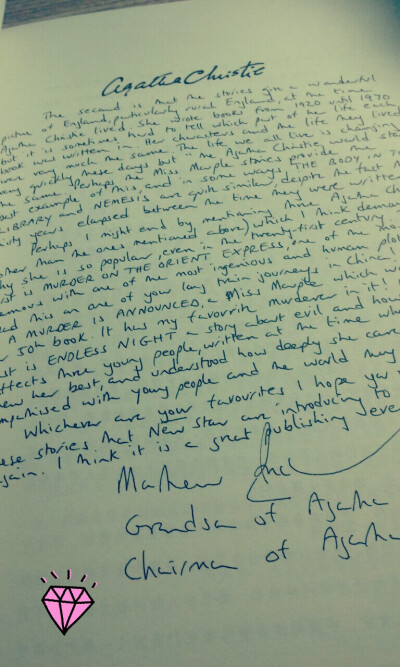 Agatha Christie
The second is that the stories give a wonderful
picture of England, particularly rural England, at the time
Agatha Christie lived. She wrote books from 1920 until 1970
but it is sometimes hard to tell which part of her life each
book was written in. Her characters and the life they lived
were very much the same. The life we all live is changing
very quickly these days but the Agatha Christie world stays
the same. Perhaps the Miss Marple stories provide the
best example of this, and in some ways THE BODY IN THE
LIBRARY and NEMESIS are quite similar, despite the fact
years elapsed between the time they were written
Perhaps I might end by mentioning three Agatha
other than the ones mentioned above) which I think
why she is so popular, even in the twenty-first century
is MURDER ON THE ORIENT EXPRESS, one of the
famous with one of the most ingenious and human
this on one of your long train journeys in China!
A MURDER IS ANNOUNCED, a Miss Marple which
50th book. It has my favourite murderer in it!
is ENDLESS NIGHT a story about evil and how
affects three young people, written at the time
knew her best, and understood how deeply she
with young people and the world they
Whichever are your favourites I hope you
these stories that New Star are introducing to
again. I think it is a great publishing
Mathew
Grandson of Agatha
Chairman of Agatha